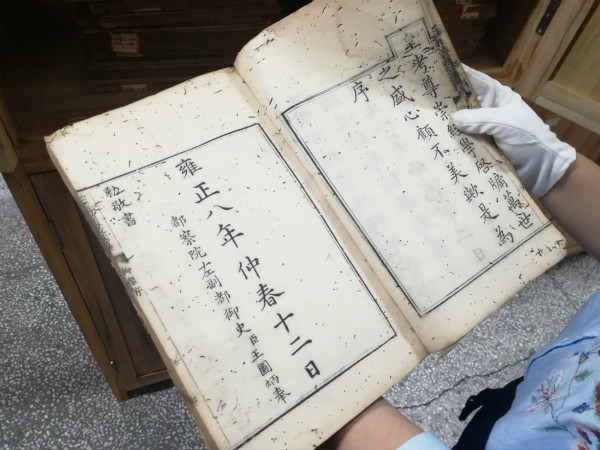 皇考尊崇經學啓牖萬世
之盛心顧不美歟是為
序
雍正八年仲春十二日
都察院左副都御史臣王圖炳奉
勅敬書